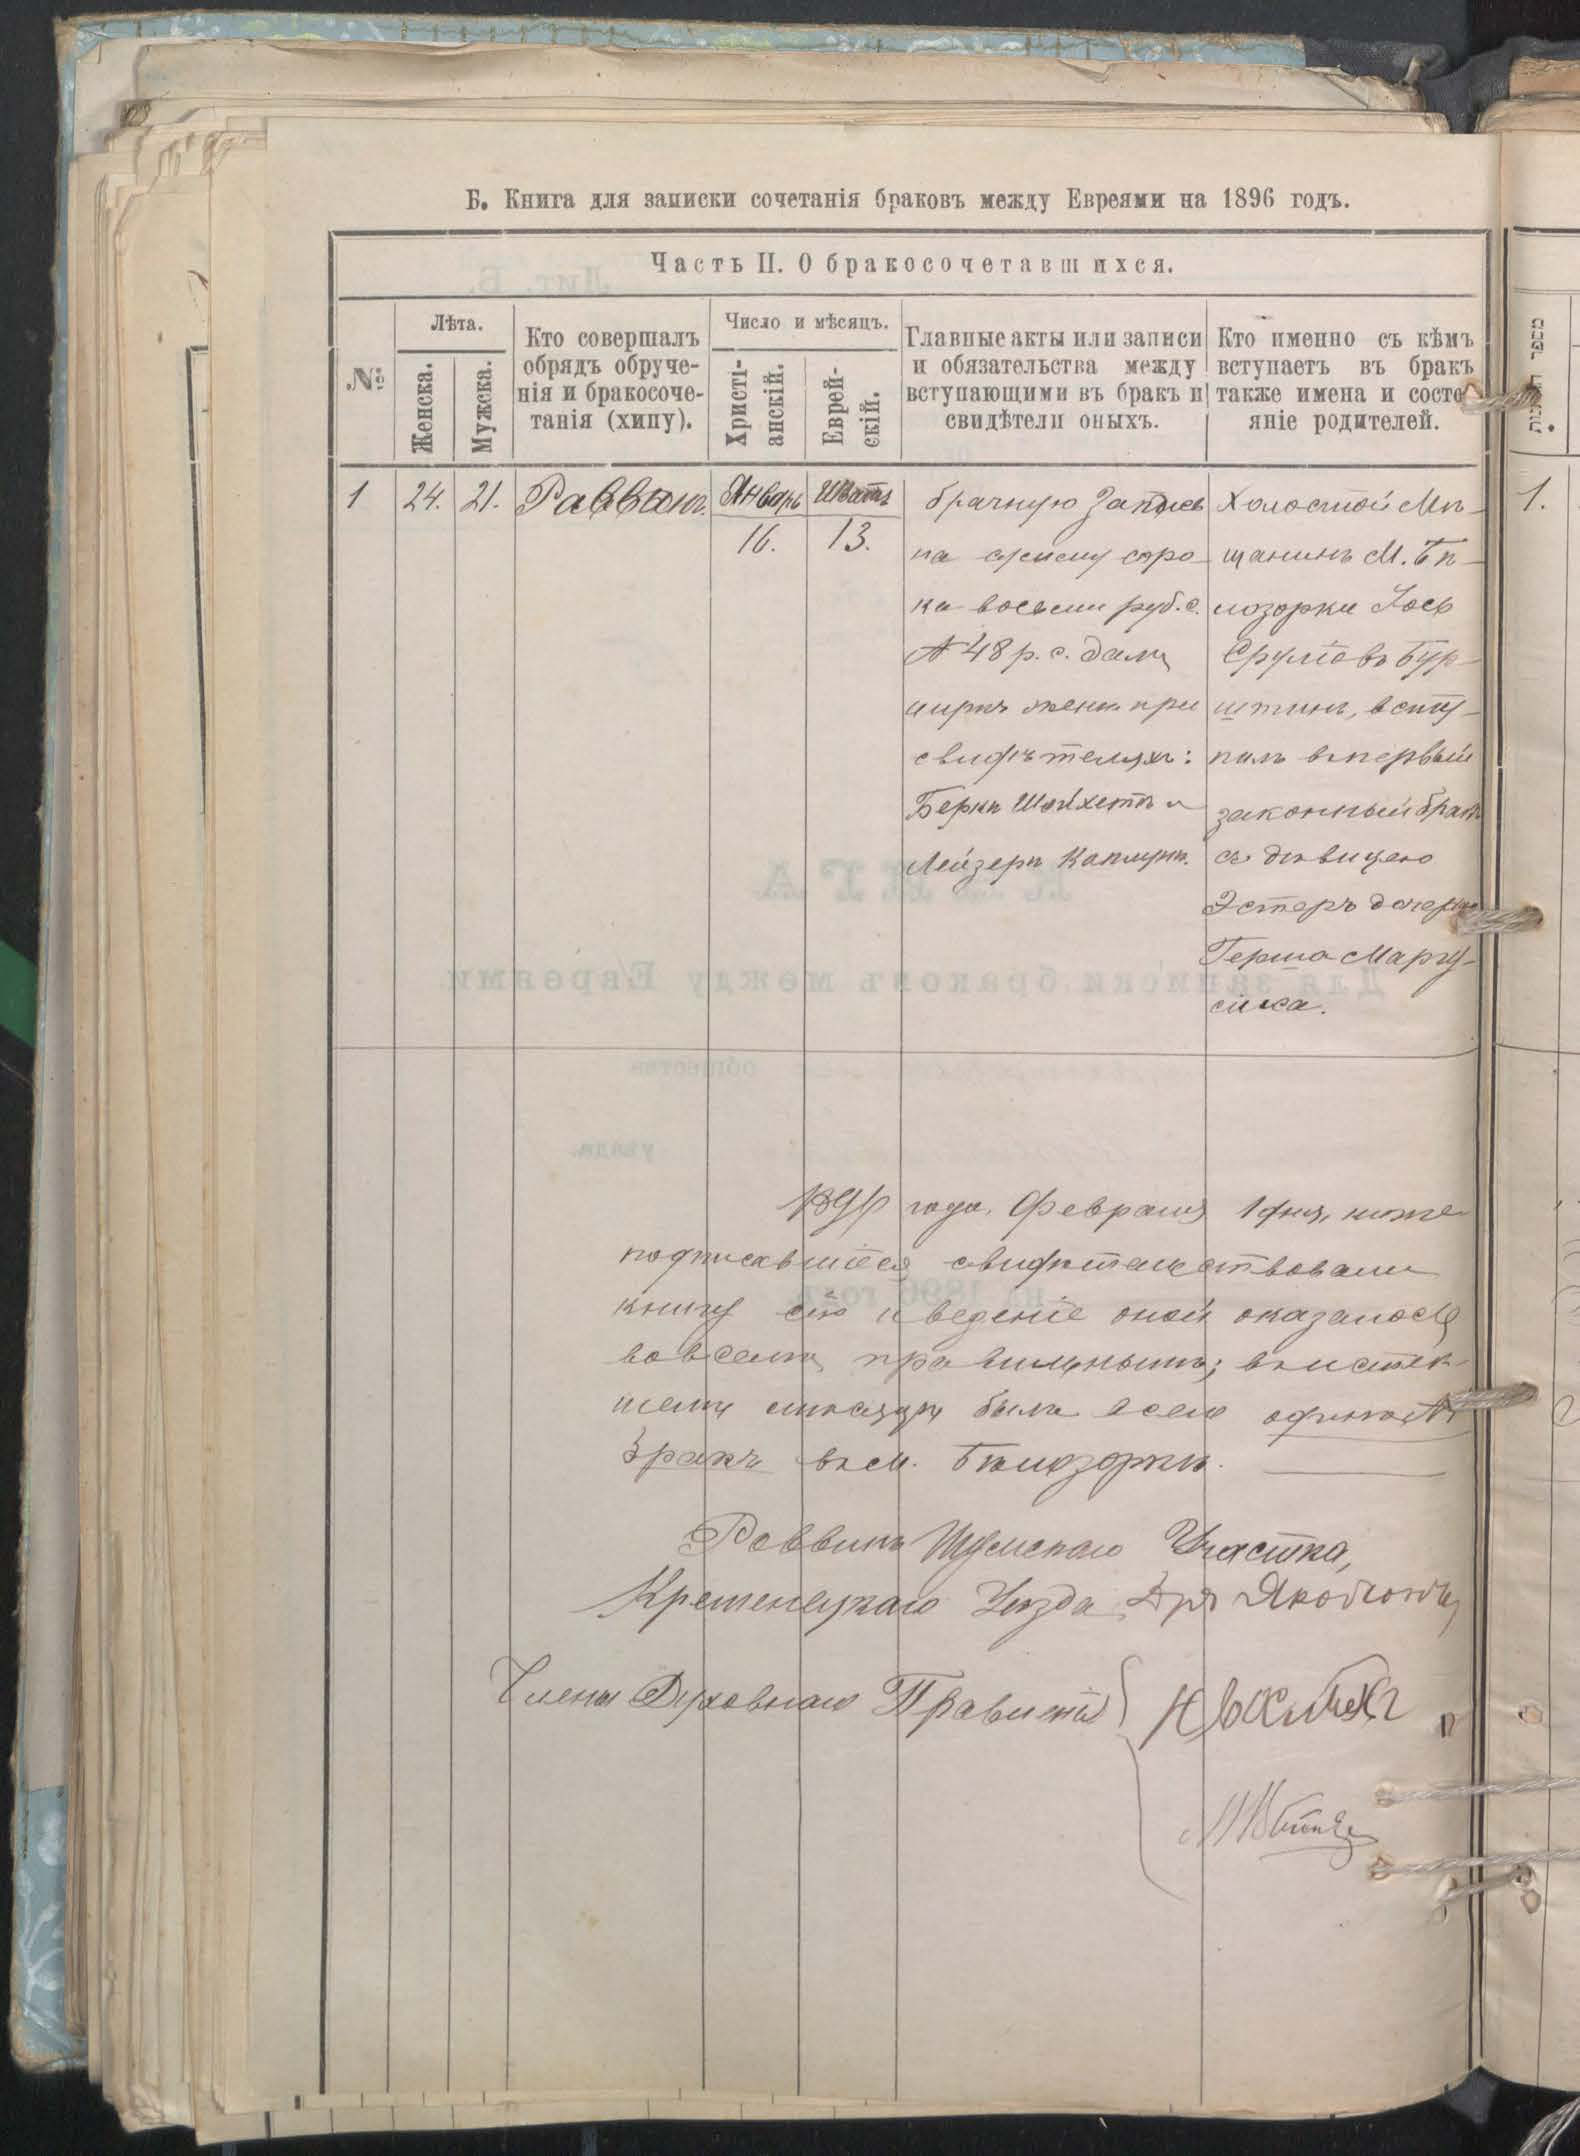 Б. Книга для записки сочетанія браковъ между Евреями на 1896 годъ.
Часть II. О бракосочетавшихся.
№
Лѣта.
Женска.
Мужска.
Кто совершалъ
обрядъ обруче-
нія и бракосоче-
танія (хипу).
Число и мѣсяцъ.
Христі-
анскій.
Еврей-
скій.
Главные акты или записи
и обязательства между
вступающими въ бракъ и
свидѣтели оныхъ.
Кто именно съ кѣмъ
вступаетъ въ бракъ
также имена и состо-
яніе родителей.
1
24.
21.
Раввинъ.
Январь
16.
Шватъ
13.
брачную запись
на сумму соро-
ка восьми руб. с.
А 48 р. с. далъ
мужъ женѣ при
свидѣтеляхъ:
Беркѣ Шойхетъ и
Лейзеръ Каплунъ.
Холостой Мѣ-
щанинъ М. Бѣ-
лозорки Іось
Сруліовъ Бур-
штинъ, всту-
пилъ въ первый
законный бракъ
съ дѣвицею
Эстеръ дочерью
Герша Маргу-
лиса.
1.
года. Февраля 1 дня, ниже
подписавшіеся свидѣтельствовали
книгу сію и веденіе оной оказалось
во всемъ правильнымъ; въ истек-
шемъ мѣсяцѣ былъ всего одинъ
бракъ въ м. Бѣлозоркѣ.
Раввинъ Шумскаго Участка,
Кременецкаго Уѣзда
Члены Духовнаго Правленія